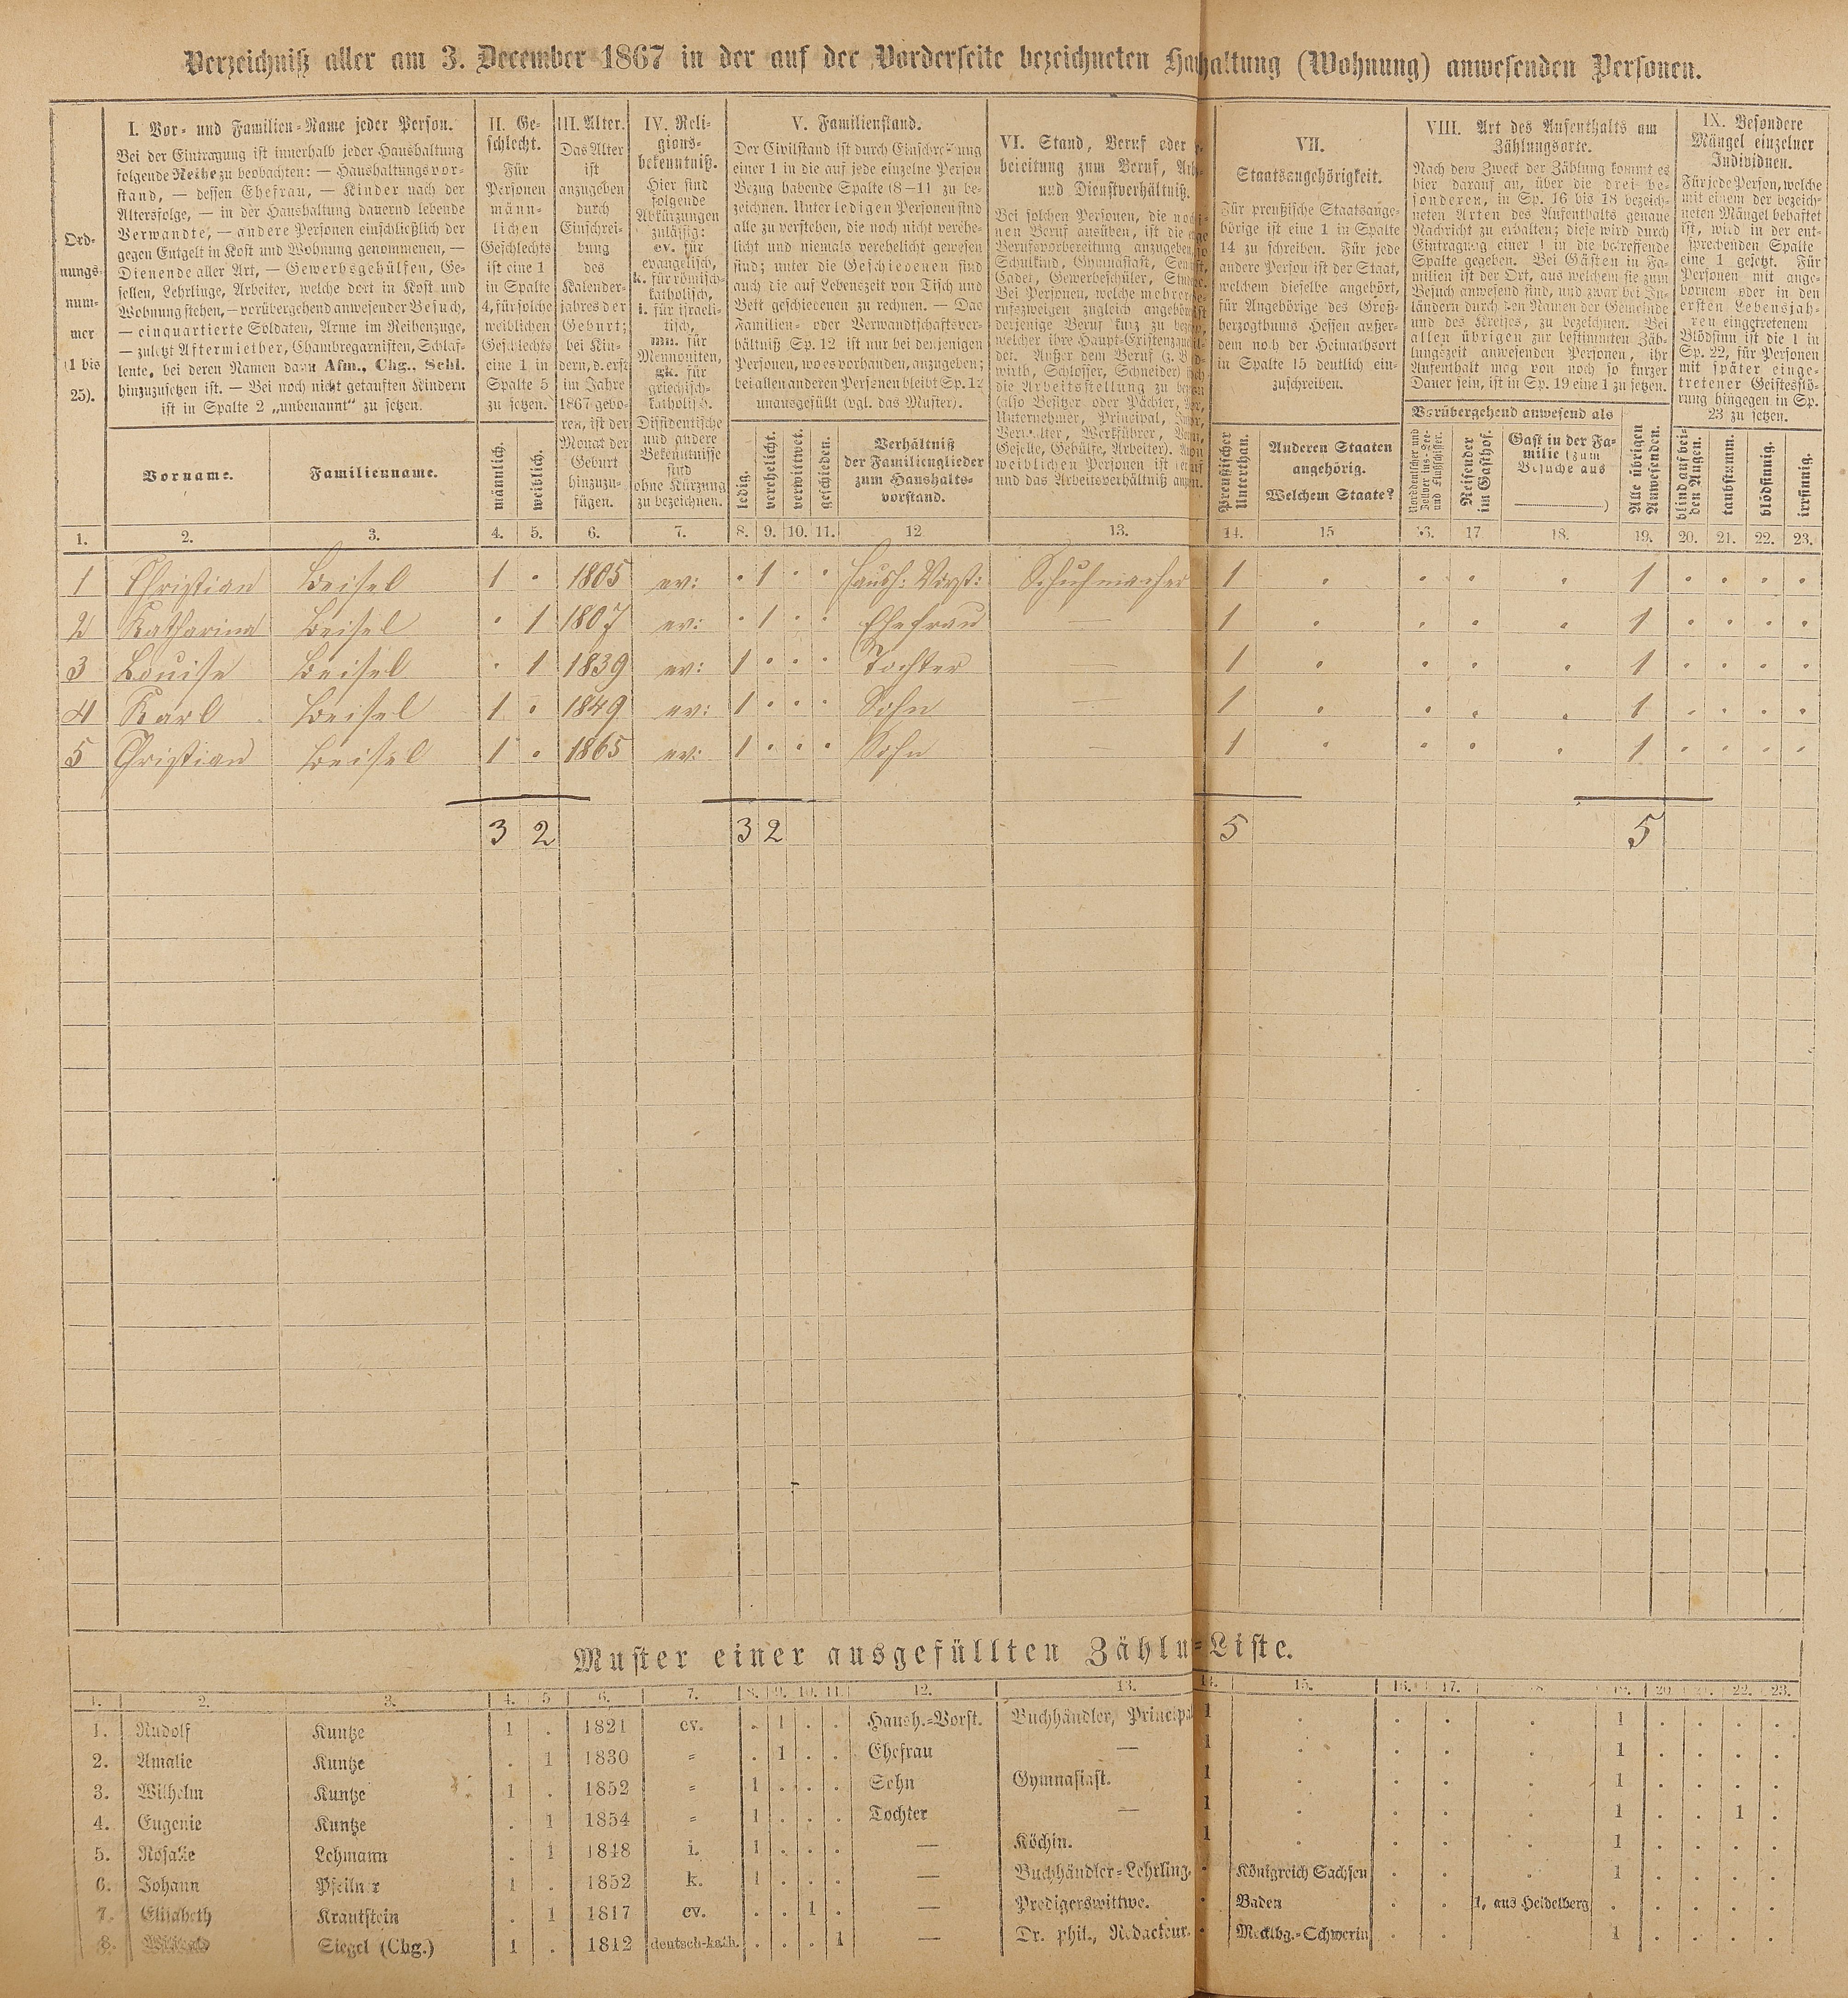 Verzeichniß aller am 3. December 1867 in der auf der Vorderseite bezeichneten Haushaltung (Wohnung) anwesenden Personen.
Ord-
nungs-
num-
mer
(1 bis
25).
I. Vor- und Familien-Name jeder Person.
Bei der Eintragung ist innerhalb jeder Haushaltung
folgende Reihe zu beobachten: — Haushaltungsvor-
stand, — dessen Ehefrau, — Kinder nach der
Altersfolge, — in der Haushaltung dauernd lebende
Verwandte, — andere Personen einschließlich der
gegen Entgelt in Kost und Wohnung genommenen, —
Dienende aller Art, — Gewerbsgehülfen, Ge-
sellen, Lehrlinge, Arbeiter, welche dort in Kost und
Wohnung stehen, — vorübergehend anwesender Besuch,
— einquartierte Soldaten, Arme im Reihenzuge,
— zuletzt Aftermiether, Chambregarnisten, Schlaf-
leute, bei deren Namen dann Afm., Chg., Schl.
hinzuzusetzen ist. — Bei noch nicht getauften Kindern
ist in Spalte 2 „unbenannt“ zu setzen.
Vorname.
Familienname.
II. Ge-
schlecht.
Für
Personen
männ-
lichen
Geschlechts
ist eine 1
in Spalte
4, für solche
weiblichen
Geschlechts
eine 1 in
Spalte 5
zu setzen.
männlich.
weiblich.
III. Alter.
Das Alter
ist
anzugeben
durch
Einschrei-
bung
des
Kalender-
jahres der
Geburt;
bei Kin-
dern, d. erst
im Jahre
1867 gebo-
ren, ist der
Monat der
Geburt
hinzuzu-
fügen.
IV. Reli-
gions-
bekenntniß.
Hier sind
folgende
Abkürzungen
zulässig:
ev. für
evangelisch,
k. für römisch-
katholisch,
i. für israeli-
tisch,
mn. für
Mennoniten,
gk. für
griechisch-
katholisch.
Dissidentische
und andere
Bekenntnisse
sind
ohne Kürzung
zu bezeichnen.
V. Familienstand.
Der Civilstand ist durch Einschreibung
einer 1 in die auf jede einzelne Person
Bezug habende Spalte (8—11) zu be-
zeichnen. Unter ledigen Personen sind
alle zu verstehen, die noch nicht verehe-
licht und niemals verehelicht gewesen
sind; unter die Geschiedenen sind
auch die auf Lebenszeit von Tisch und
Bett geschiedenen zu rechnen. — Das
Familien- oder Verwandtschaftsver-
hältniß Sp. 12 ist nur bei denjenigen
Personen, wo es vorhanden, anzugeben;
bei allen anderen Personen bleibt Sp. 12
unausgefüllt (vgl. das Muster).
ledig.
verehelicht.
verwittwet.
geschieden.
Verhältniß
der Familienglieder
zum Haushalts-
vorstand.
VI. Stand, Beruf oder
bereitung zum Beruf,
und Dienstverhältniß.
Bei solchen Personen, die
nen Beruf ausüben, ist die
Berufsvorbereitung anzugeben,
Schulkind, Gymnasiast,
Cadet, Gewerbeschüler,
Bei Personen, welche mehreren
rufszweigen zugleich angehören
derjenige Beruf kurz zu
welcher ihre Haupt-Existenz
det. Außer dem Beruf (z. B.
wirth, Schlosser, Schneider)
die Arbeitsstellung zu
(also Besitzer oder Pächter,
Unternehmer, Principal,
Verwalter, Werkführer,
Geselle, Gehülfe, Arbeiter).
weiblichen Personen ist
und das Arbeitsverhältniß
VII.
Staatsangehörigkeit.
Für preußische Staatsange-
hörige ist eine 1 in Spalte
14 zu schreiben. Für jede
andere Person ist der Staat,
welchem dieselbe angehört,
für Angehörige des Groß-
herzogthums Hessen außer-
dem noch der Heimathsort
in Spalte 15 deutlich ein-
zuschreiben.
Preußischer
Unterthan.
Anderen Staaten
angehörig.
Welchem Staate?
VIII. Art des Aufenthalts am
Zählungsorte.
Nach dem Zweck der Zählung kommt es
hier darauf an, über die drei be-
sonderen, in Sp. 16 bis 18 bezeich-
neten Arten des Aufenthalts genaue
Nachricht zu erhalten; diese wird durch
Eintragung einer 1 in die betreffende
Spalte gegeben. Bei Gästen in Fa-
milien ist der Ort, aus welchem sie zum
Besuch anwesend sind, und zwar bei In-
ländern durch den Namen der Gemeinde
und des Kreises, zu bezeichnen. Bei
allen übrigen zur bestimmten Zäh-
lungszeit anwesenden Personen, ihr
Aufenthalt mag von noch so kurzer
Dauer sein, ist in Sp. 19 eine 1 zu setzen.
Vorübergehend anwesend als
Norddeutscher und
Zollvereins-See-
und Flußschiffer.
Reisender
im Gasthof.
Gast in der Fa-
milie (zum
Besuche aus
)
Alle übrigen
Anwesenden.
IX. Besondere
Mängel einzelner
Individuen.
Für jede Person, welche
mit einem der bezeich-
neten Mängel behaftet
ist, wird in der ent-
sprechenden Spalte
eine 1 gesetzt. Für
Personen mit ange-
bornem oder in den
ersten Lebensjah-
ren eingetretenem
Blödsinn ist die 1 in
Sp. 22, für Personen
mit später einge-
tretener Geistesstö-
rung hingegen in Sp.
23 zu setzen.
blind auf bei-
den Augen.
taubstumm.
blödsinnig.
irrsinnig.
1. 2. 3. 4. 5. 6. 7. 8. 9. 10. 11. 12 13. 14. 15 16. 17 18. 19. 20. 21. 22. 23.
1 Christian Beisel 1 . 1805 ev: . 1 . . Haush: Vorst: Schuhmacher 1 . . . . 1 . . . .
2 Katharina Beisel . 1 1807 ev: . 1 . . Ehefrau — 1 . . . . 1 . . . .
3 Louise Beisel . 1 1839 ev: 1 . . . Tochter — 1 . . . . 1 . . . .
4 Karl Beisel 1 . 1849 ev: 1 . . . Sohn — 1 . . . . 1 . . . .
5 Christian Beisel 1 . 1865 ev: 1 . . . Sohn — 1 . . . . 1 . . . .
3 2 3 2 5 5
Muster einer ausgefüllten Zählu=Liste.
1. 2. 3. 4. 5 6. 7. 8. 9. 10. 11. 12. 13. 14. 15. 16. 17. 18. 19. 20 21. 22. 23.
1. Rudolf Kuntze 1 . 1821 ev. . 1 . . Haush.-Vorst. Buchhändler, Principal 1 . . . . 1 . . . .
2. Amalie Kuntze . 1 1830 = . 1 . . Ehefrau — 1 . . . . 1 . . . .
3. Wilhelm Kuntze 1 . 1852 = 1 . . . Sohn Gymnasiast. 1 . . . . 1 . . . .
4. Eugenie Kuntze . 1 1854 = 1 . . . Tochter — 1 . . . . 1 . . 1 .
5. Rosalie Lehmann . 1 1848 i. 1 . . . — Köchin. 1 . . . . 1 . . . .
6. Johann Pfeilner 1 . 1852 k. 1 . . . — Buchhändler=Lehrling. . Königreich Sachsen . . . 1 . . . .
7. Elisabeth Krautstein . 1 1817 ev. . . 1 . — Predigerswittwe. . Baden . . 1, aus Heidelberg . . . . .
8. Siegel (Chg.) 1 . 1812 deutsch-kath. . . . 1 — Dr. phil., Redacteur. . Mecklbg.=Schwerin . . . 1 . . . .